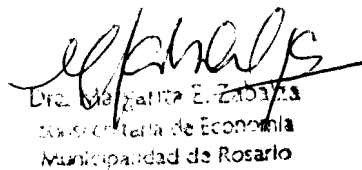 Dra. Margarita E. Zabalza
Subsecretaría de Economía
Municipalidad de Rosario